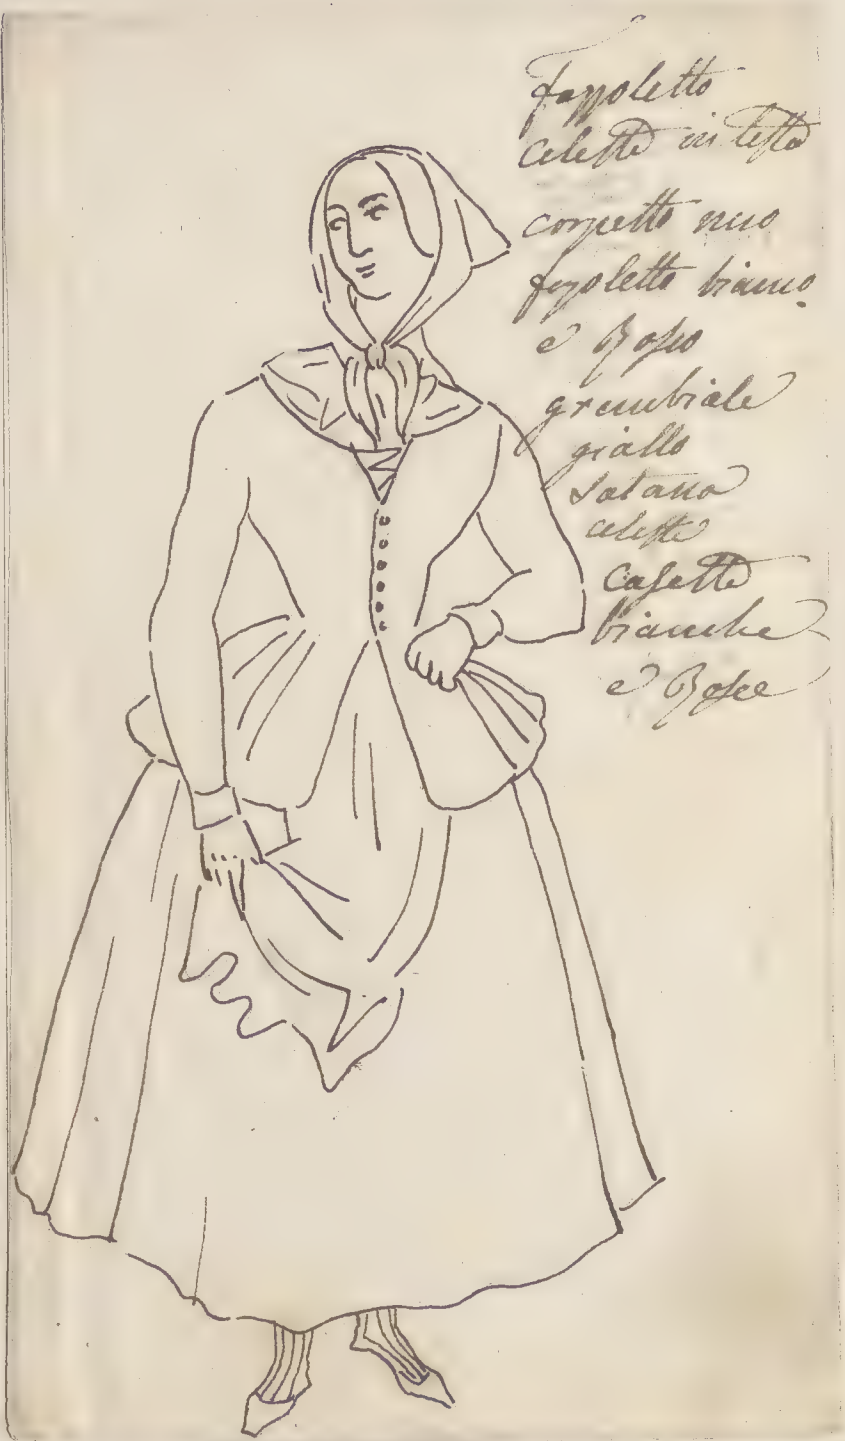 fazzoletto
celeste in testa
corpetto nero
fazoletto bianco
e Rosso
grembiale
giallo
sotana
celeste
casette
bianche
e Rosse